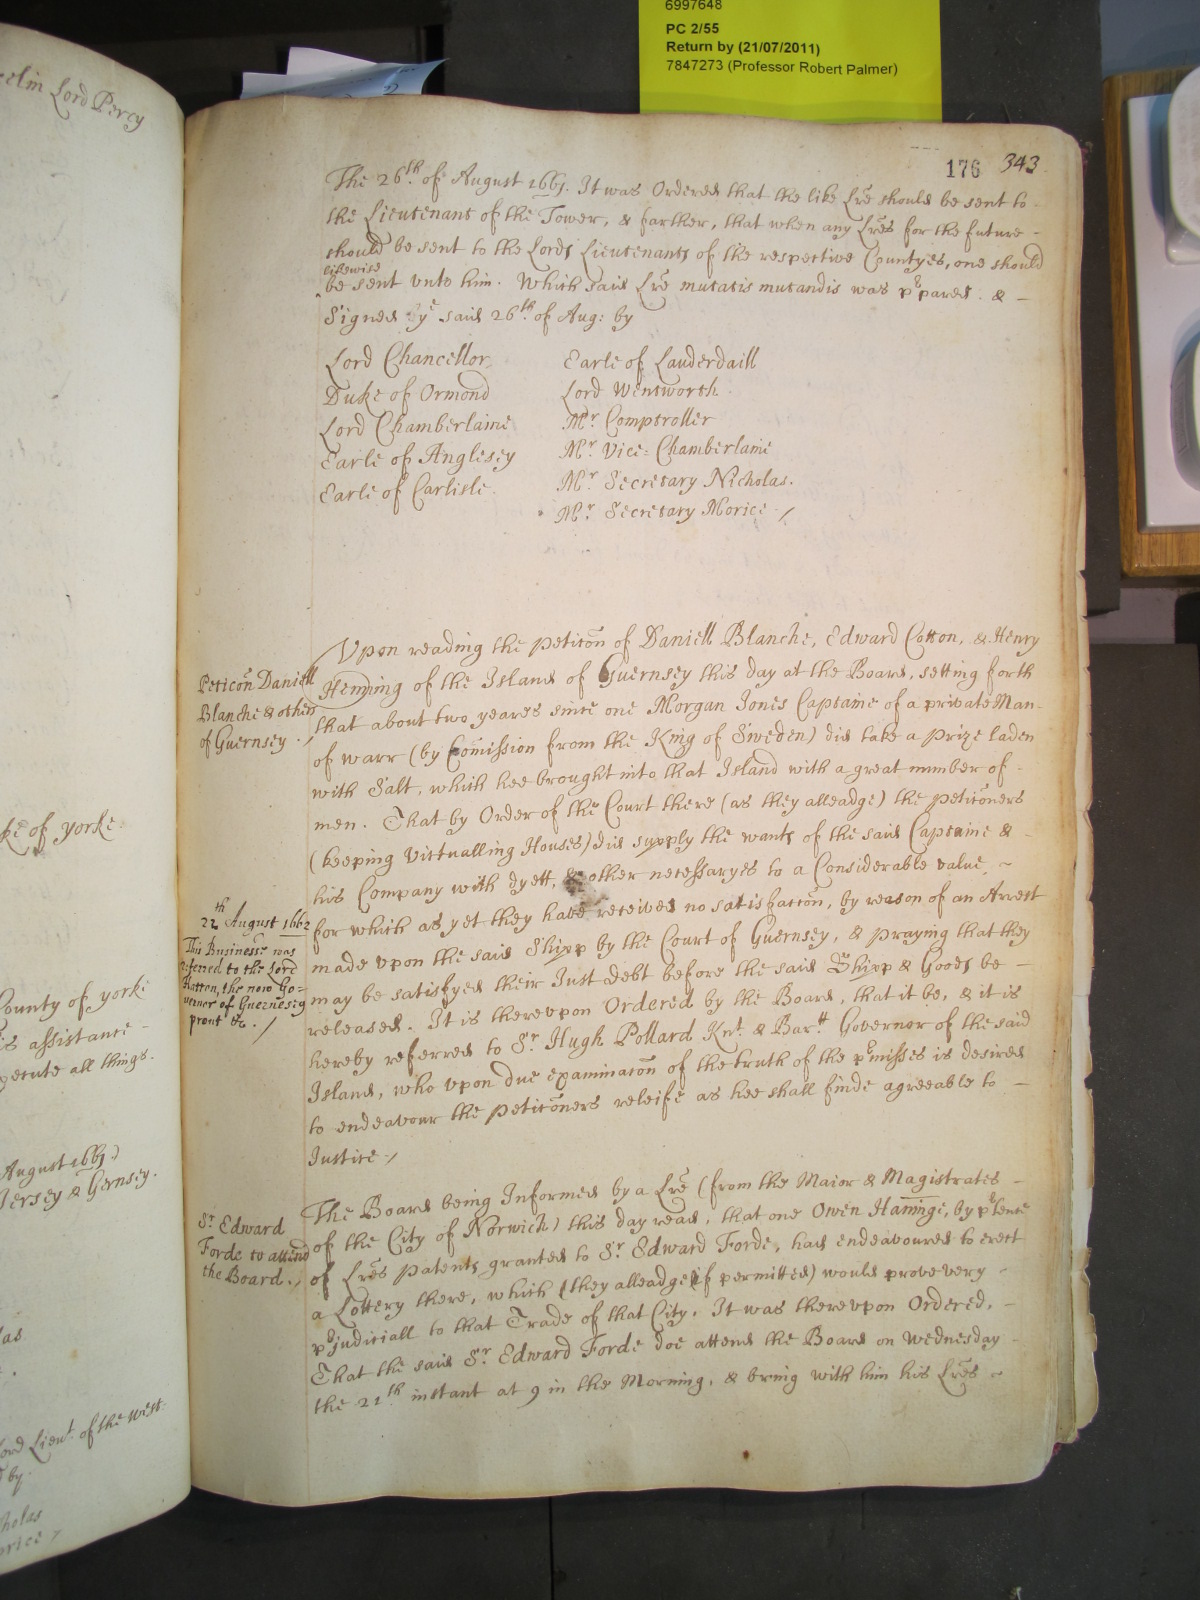 6997648
PC 2/55
Return by (21/07/2011)
7847273 (Professor Robert Palmer)
Lord Percy
ke of yorke
County of yorke
is assistance
all things.
August 1661.
Jersey & Gernsey.
Lord Lieut. of the West
by
holas
orice
176 343
The 26th of August 1661. It was Ordered that the like Lre should be sent to
the Lieutenant of the Tower, & farther, that when any Lres for the future
should be sent to the Lords Lieutenants of the respective Countyes, one should
likewise
be sent unto him. Which said Lre mutatis mutandis was ppared &
Signed ye said 26th of Aug: by
Lord Chancellor
Duke of Ormond
Lord Chamberlaine
Earle of Anglesey
Earle of Carlisle
Earle of Lauderdaill
Lord Wentworth
Mr. Comptroller
Mr. Vice: Chamberlaine
Mr. Secretary Nicholas.
Mr. Secretary Morice /
Peticon Daniell
Blanche & others
of Guernsey
Vpon reading the Peticon of Daniell Blanche, Edward Cotton, & Henry
Heming of the Island of Guernsey this day at the Board, setting forth
that about two yeares since one Morgan Jones Captaine of a private Man
of warr (by Comission from the King of Sweden) did take a Prize laden
with Salt, which hee brought into that Island with a great number of
men. That by Order of the Court there (as they alleadge) the Peticoners
(keeping Victualling Houses) did supply the wants of the said Captaine &
his Company with dyett, & other necessaryes to a Considerable value,
for which as yet they have received no satisfaccon, by reason of an Arrest
made vpon the said Shipp by the Court of Guernsey, & praying that they
may be satisfyed their Just debt before the said Shipp & Goods be
released. It is therevpon Ordered by the Board, that it be, & it is
hereby referred to Sr. Hugh Pollard Knt. & Bart. Governor of the said
Island, who vpon due examinacon of the truth of the pmisses is desired
to endeavour the Peticoners releife as hee shall finde agreeable to
Justice /
22th August 1662
This Businesse was
referred to the Lord
Hatton, the now Go=
vernor of Guernesey
prout &c. /
Sr. Edward
Forde to attend
the Board. /
The Board being Informed by a Lre (from the Maior & Magistrates
of the City of Norwich) this day read, that one Owen Haninge, by ptence
of Lres Patents granted to Sr. Edward Forde, had endeavoured to erect
a Lottery there, which (they alleadge if permitted) would prove very
pjudiciall to that Trade of that City. It was therevpon Ordered,
That the said Sr. Edward Forde doe attend the Board on Wednesday
the 21th instant at 9 in the Morning, & bring with him his Lres